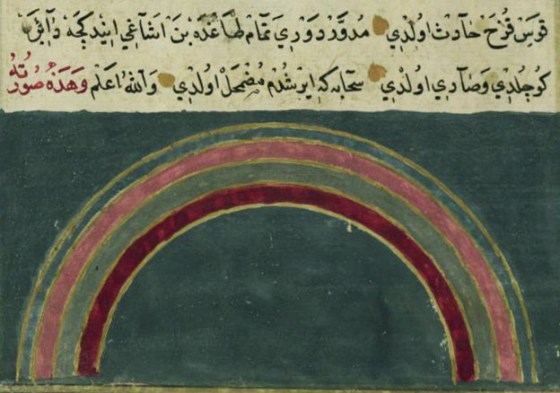 قوس قزح حادث اولدي مدور دوري تمام طاغدن اشاغي ايندكجه دايرة
كوچلدي وصاري اولدي سحابه كه ايرشدم مضمحل اولدي والله اعلم وهذه صورته